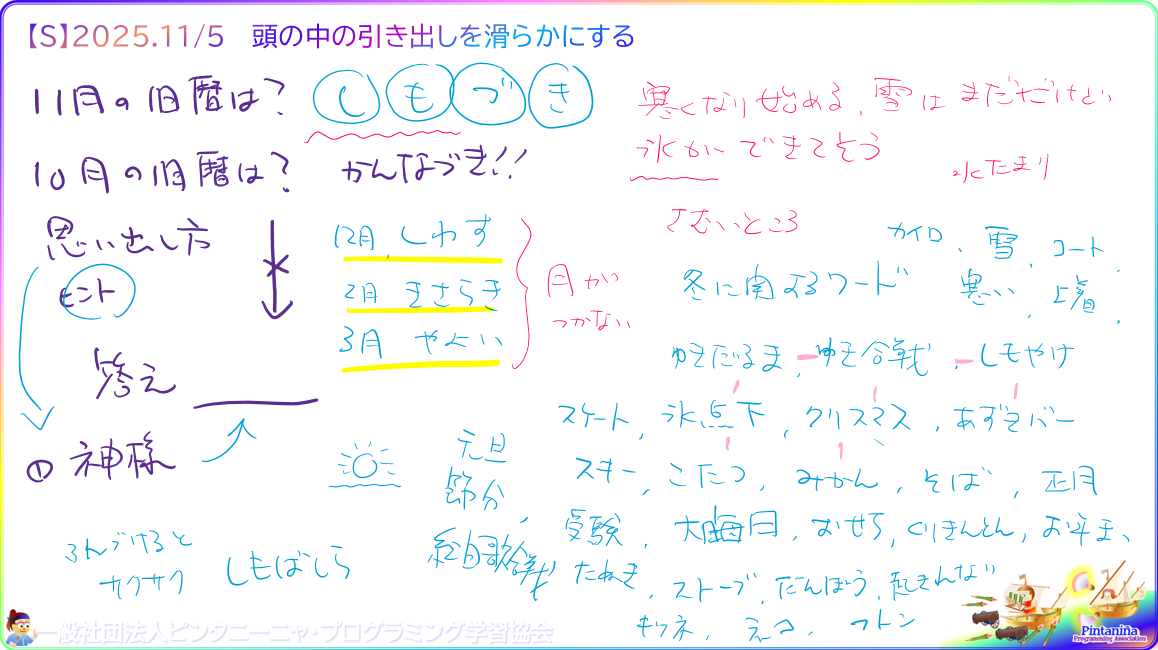 【S】2025.11/5　頭の中の引き出しを滑らかにする
11月の旧暦は？ しもづき
10月の旧暦は？ かんなづき!!
思い出し方
ヒント
答え
① 神様
ふんづけると
サクサク
しもばしら
12月 しわす
2月 きさらぎ
3月 やよい
月が
つかない
寒くなり始める、雪は まだだけど
氷が できてそう
水たまり
さむいところ
冬に関するワード
カイロ、雪、コート、
寒い、上着、
ゆきだるま、ゆき合戦、しもやけ
スケート、氷点下、クリスマス、あずきバー
スキー、こたつ、みかん、そば、正月
元旦
節分、
紅白歌合戦
受験、大晦日、おせち、くりきんとん、お年玉、
たぬき、ストーブ、だんぼう、起きれない
キツネ、ネコ、フトン
一般社団法人ピンタニーニャ・プログラミング学習協会
Pintanina
Programming Association